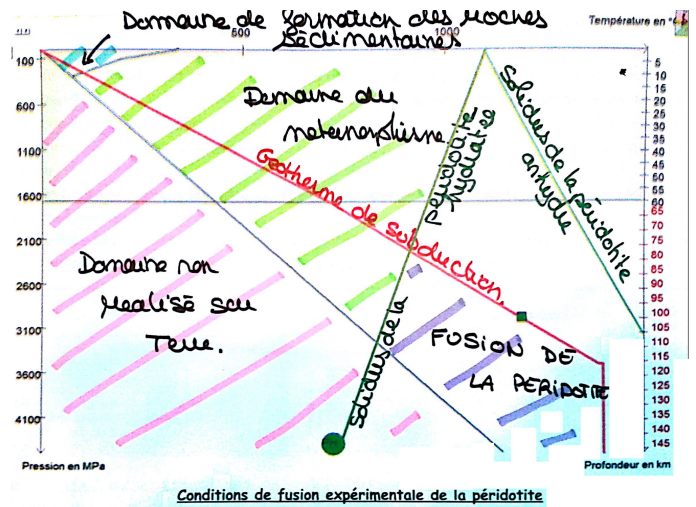 Domaine de formation des Roches
Sédimentaires
Température en °
500
1000
100
600
1100
1600
2100
2600
3100
3600
4100
5
10
15
20
25
30
35
40
45
50
55
60
65
70
75
80
85
90
95
100
105
110
115
120
125
130
135
140
145
Domaine du
métamorphisme.
Géotherme de subduction.
Solidus de la péridotite hydratée
Solidus de la péridotite
anhydre
Domaine non
réalisé sur
Terre.
FUSION DE
LA PERIDOTITE
Pression en MPa
Profondeur en km
Conditions de fusion expérimentale de la péridotite